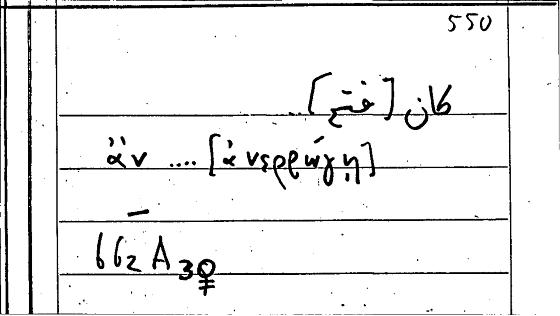 550
كان [فتح] ..
ἂν .... [ἀνερρώγῃ]
662 A 30